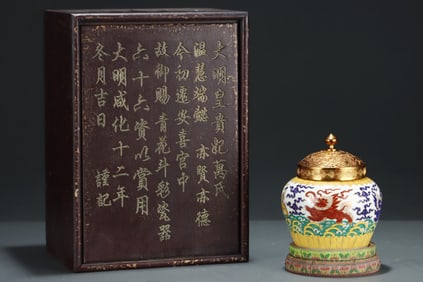 大明皇貴妃萬氏
温慧端懿 亦賢亦德
今初遷安喜宫中
故御賜青花斗彩瓷器
六十六資以賞用
大明成化十二年
冬月吉日 謹記